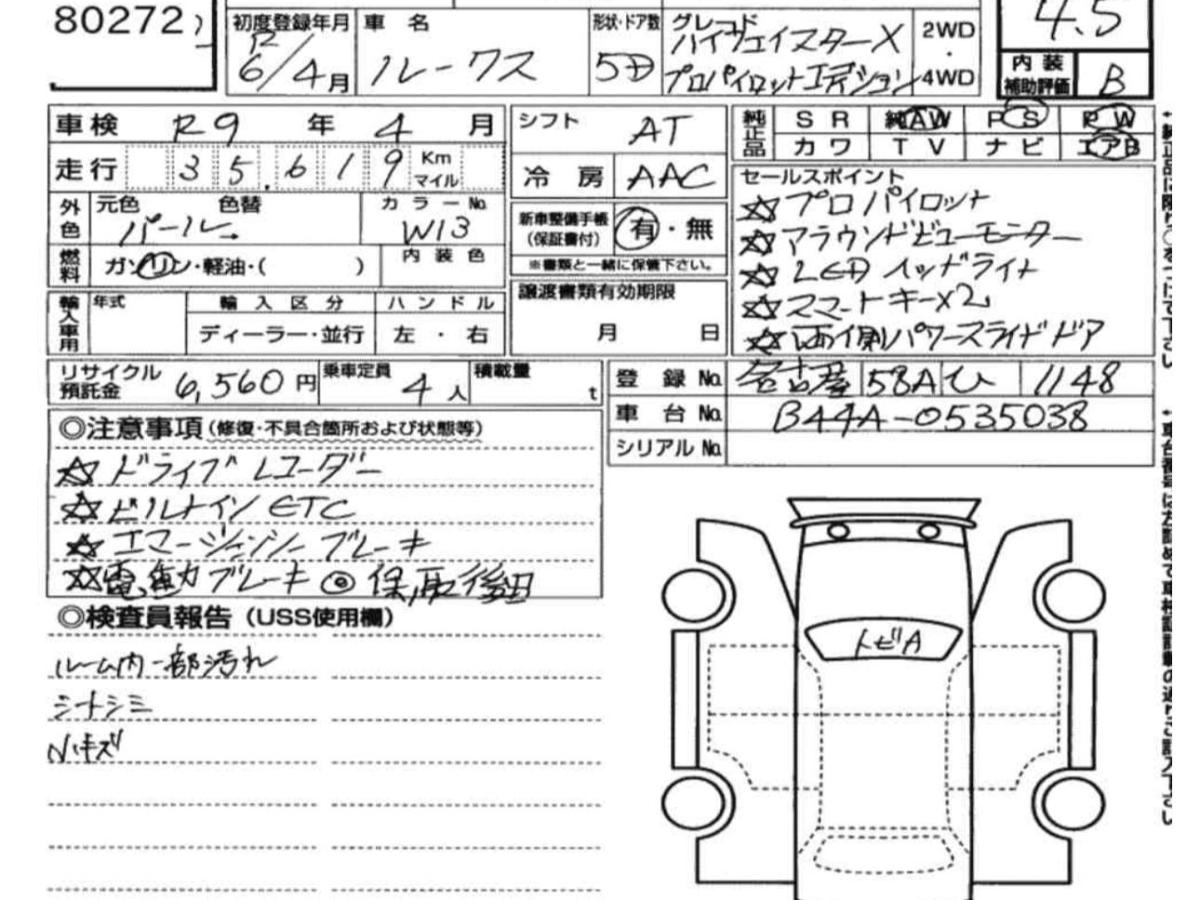 80272
初度登録年月 車名 形状・ドア数 グレード 2WD・4WD 4.5
R6/4月 ルークス 5D ハイウェイスターX プロパイロットエディション
内装補助評価 B
車検 R9年4月 シフト AT 純正品 SR 純AW PS PW
カワ TV ナビ エアB
走行 35.619 Km マイル 冷房 AAC
セールスポイント
外色 元色 パール 色替 カラーNo. W13
新車整備手帳(保証書付) 有・無
☆プロパイロット
☆アラウンドビューモニター
燃料 ガソリン・軽油・( ) 内装色
※書類と一緒に保管下さい。
☆LEDヘッドライト
☆スマートキー×2
☆両側パワースライドドア
輸入車用 年式 輸入区分 ハンドル
ディーラー・並行 左・右
譲渡書類有効期限
月 日
リサイクル預託金 6,560円 乗車定員 4人 積載量 t
登録No. 名古屋 58A ひ 1148
車台No. B44A-0535038
シリアルNo.
◎注意事項(修復・不具合箇所および状態等)
☆ドライブレコーダー
☆ビルトインETC
☆エマージェンシーブレーキ
☆電動ブレーキ ◎保,取後日
◎検査員報告(USS使用欄)
ルーム内一部汚れ
シートシミ
小キズ
トビA
↑純正品に限り○をつけて下さい
↑車台番号は左詰めで車検証記載の通りご記入下さい